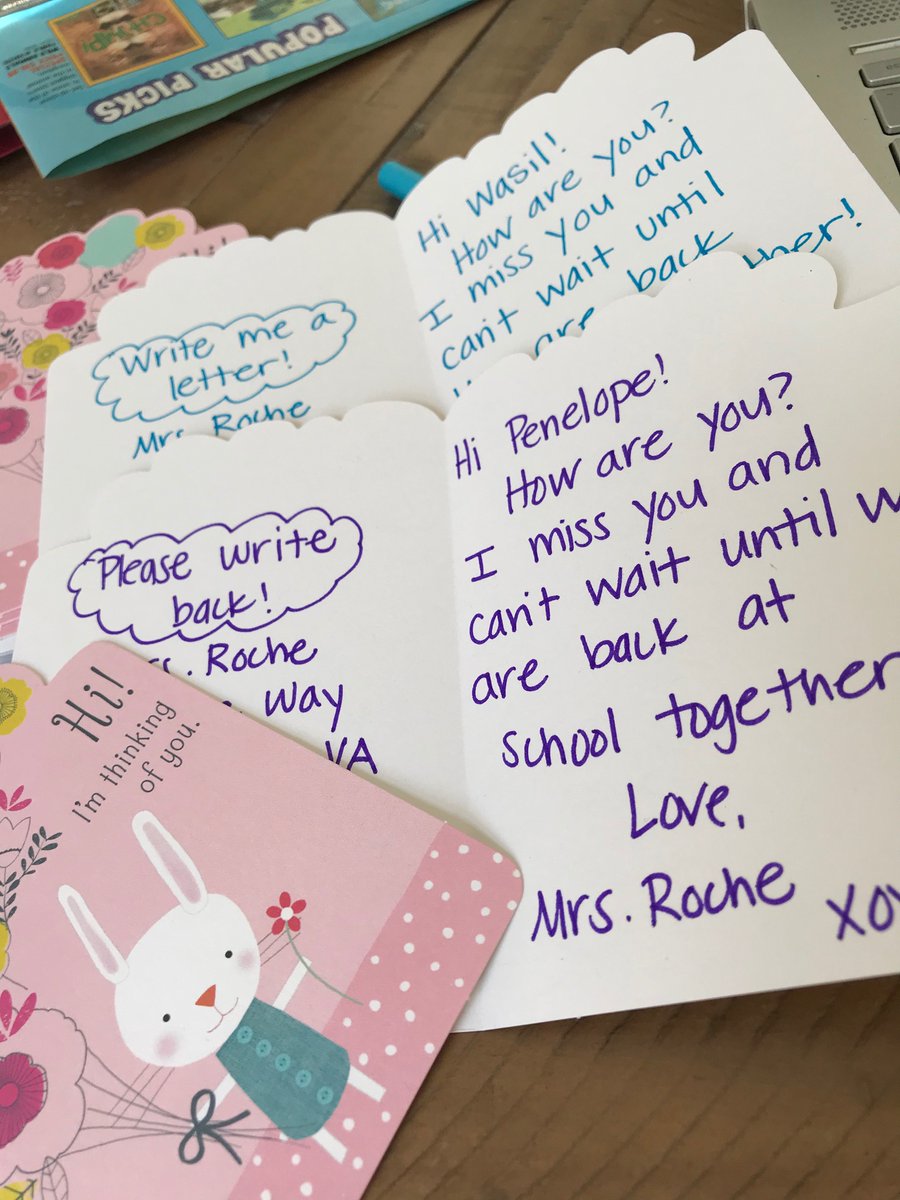 POPULAR PICKS
CHOMP!
Hi Wasil!
How are you?
I miss you and
can't wait until
are back
Write me a
letter!
Mrs. Roche
Hi Penelope!
How are you?
I miss you and
can't wait until
are back at
school together
Love,
Mrs. Roche
Please write
back!
Roche
Way
VA
Hi!
I'm thinking
of you.